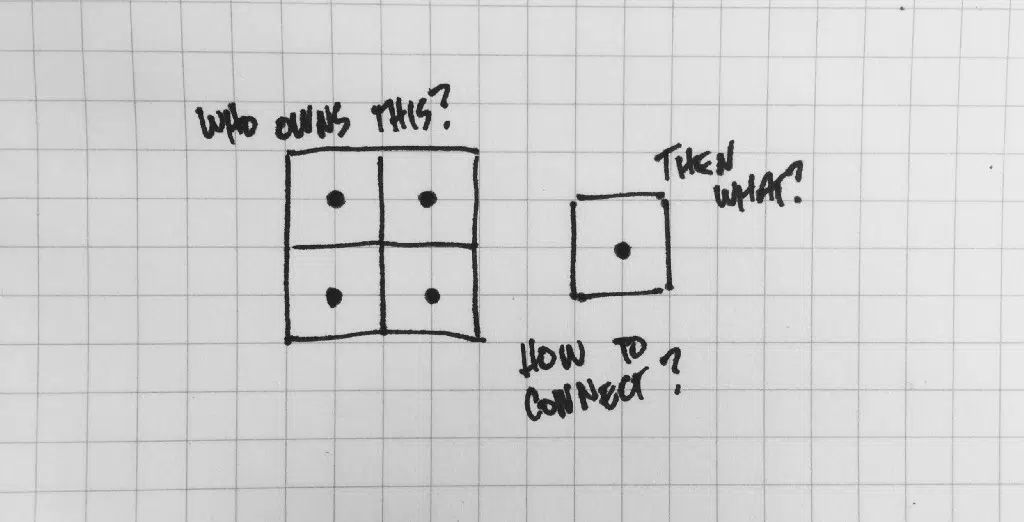 WHO OWNS THIS?
THEN
WHAT?
HOW TO
CONNECT?